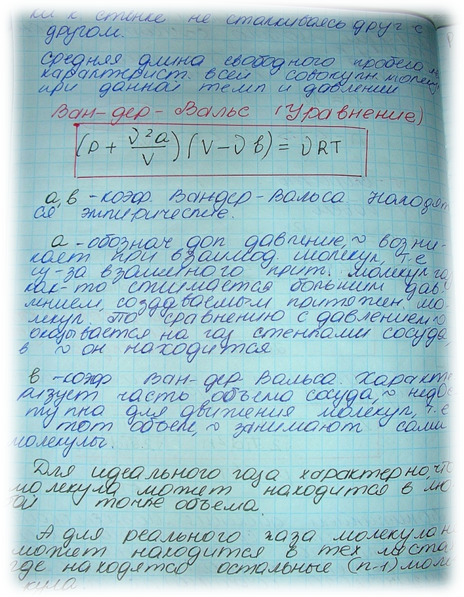 ки к стенке не сталкиваясь друг с
другом.
Средняя длина свободного пробега
характерист. всей совокупн. молекул
при данной темп и давлении
Ван-дер-Вальс (Уравнение)
(p + ν²a/V)(V-νb) = νRT
а,в - коэф. Вандер-Вальса находят
ся эмпирические.
а - обознач доп давление, ~ возни-
кает при взаимод молекул, т.е
из-за взаимного прит. молекул газ
как-то сжимается большим дав
лением, создаваемым притяжен. мо-
лекул. по сравнению с давлением
оказывается на газ стенками сосуда,
в ~ он находится
в - коэф Ван-дер-Вальса. Характе
ризует часть объёма сосуда, ~ недос
тупна для движения молекул, т.е
тот объем, ~ занимают сами
молекулы.
Для идеального газа характерно, что
молекула может находится в
ой точке объема.
А для реального газа молекула н
может находится в тех места
где находятся остальные (n-1) моле
кула